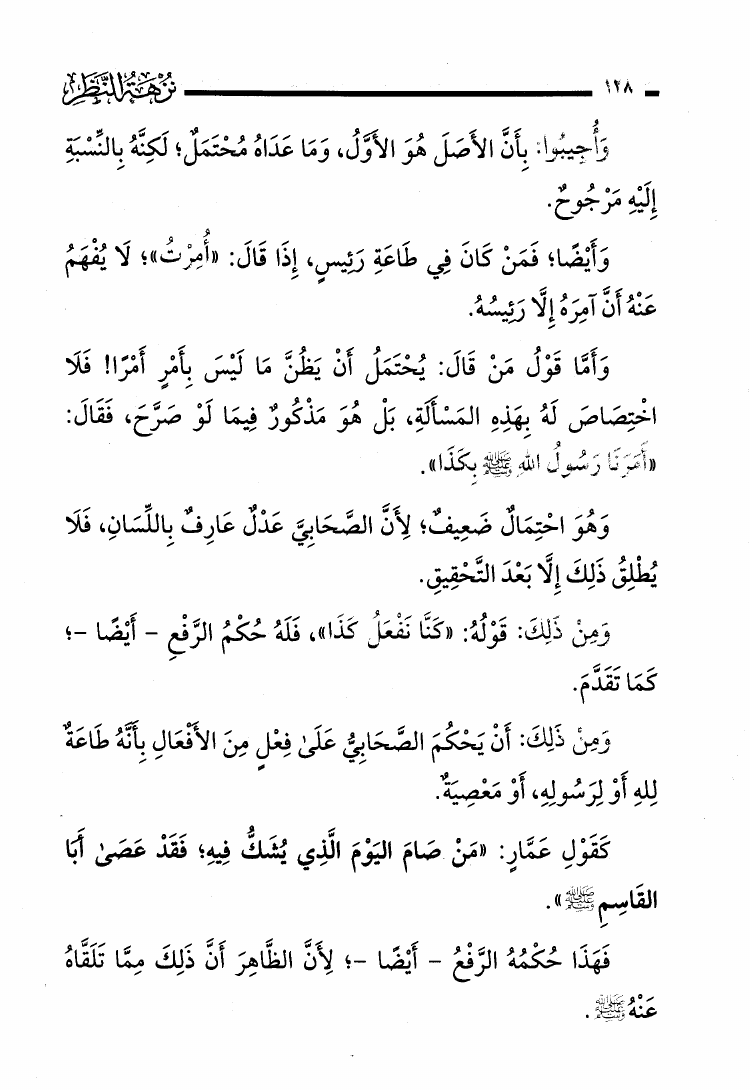 ١٢٨ نُزْهَةُ النَّظَرِ
وَأُجِيبُوا: بِأَنَّ الأَصْلَ هُوَ الأَوَّلُ، وَمَا عَدَاهُ مُحْتَمَلٌ؛ لَكِنَّهُ بِالنِّسْبَةِ
إِلَيْهِ مَرْجُوحٌ.
وَأَيْضًا؛ فَمَنْ كَانَ فِي طَاعَةِ رَئِيسٍ، إِذَا قَالَ: «أُمِرْتُ»؛ لَا يُفْهَمُ
عَنْهُ أَنَّ آمِرَهُ إِلَّا رَئِيسُهُ.
وَأَمَّا قَوْلُ مَنْ قَالَ: يُحْتَمَلُ أَنْ يَظُنَّ مَا لَيْسَ بِأَمْرٍ أَمْرًا! فَلَا
اخْتِصَاصَ لَهُ بِهَذِهِ المَسْأَلَةِ، بَلْ هُوَ مَذْكُورٌ فِيمَا لَوْ صَرَّحَ، فَقَالَ:
«أَمَرَنَا رَسُولُ اللهِ ﷺ بِكَذَا».
وَهُوَ احْتِمَالٌ ضَعِيفٌ؛ لِأَنَّ الصَّحَابِيَّ عَدْلٌ عَارِفٌ بِاللِّسَانِ، فَلَا
يُطْلِقُ ذَلِكَ إِلَّا بَعْدَ التَّحْقِيقِ.
وَمِنْ ذَلِكَ: قَوْلُهُ: «كُنَّا نَفْعَلُ كَذَا»، فَلَهُ حُكْمُ الرَّفْعِ - أَيْضًا -؛
كَمَا تَقَدَّمَ.
وَمِنْ ذَلِكَ: أَنْ يَحْكُمَ الصَّحَابِيُّ عَلَىٰ فِعْلٍ مِنَ الأَفْعَالِ بِأَنَّهُ طَاعَةٌ
لِلهِ أَوْ لِرَسُولِهِ، أَوْ مَعْصِيَةٌ.
كَقَوْلِ عَمَّارٍ: «مَنْ صَامَ اليَوْمَ الَّذِي يُشَكُّ فِيهِ؛ فَقَدْ عَصَىٰ أَبَا
القَاسِمِ ﷺ».
فَهَذَا حُكْمُهُ الرَّفْعُ - أَيْضًا -؛ لِأَنَّ الظَّاهِرَ أَنَّ ذَلِكَ مِمَّا تَلَقَّاهُ
عَنْهُ ﷺ.